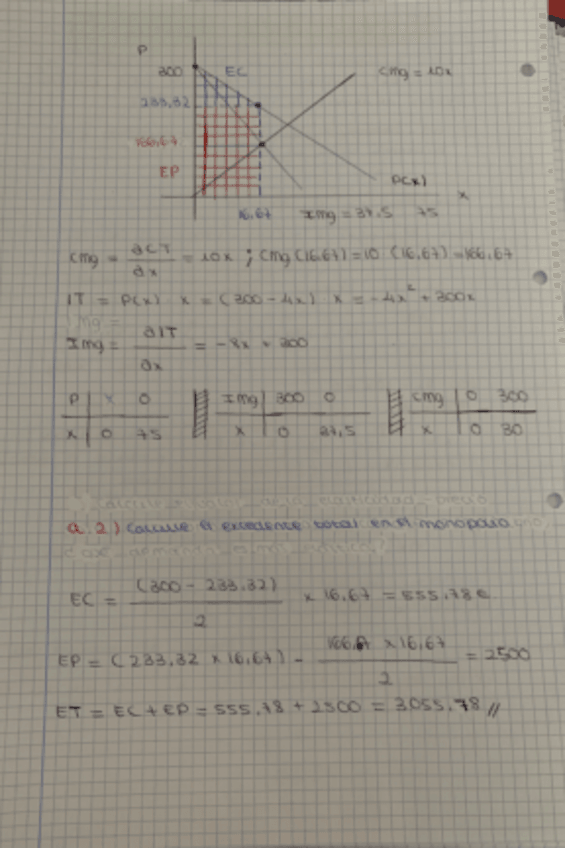 P
300 EC Cmg = 10x
233,32
166,67
EP P(x)
x
16,67 Img = 37,5 75
Cmg = ∂CT / ∂x = 10x ; Cmg (16,67) = 10 (16,67) = 166,67
IT = P(x) x = (300 - 4x) x = -4x² + 300x
Img = ∂IT / ∂x = -8x + 300
P | x 0 Img | 300 0 Cmg | 0 300
x | 0 75 x | 0 37,5 x | 0 30
a.2) Calcule el excedente total en el monopolio
EC = (300 - 233,32) / 2 x 16,67 = 555,78 €
EP = (233,32 x 16,67) - 166,67 x 16,67 / 2 = 2500
ET = EC + EP = 555,78 + 2500 = 3055,78 //